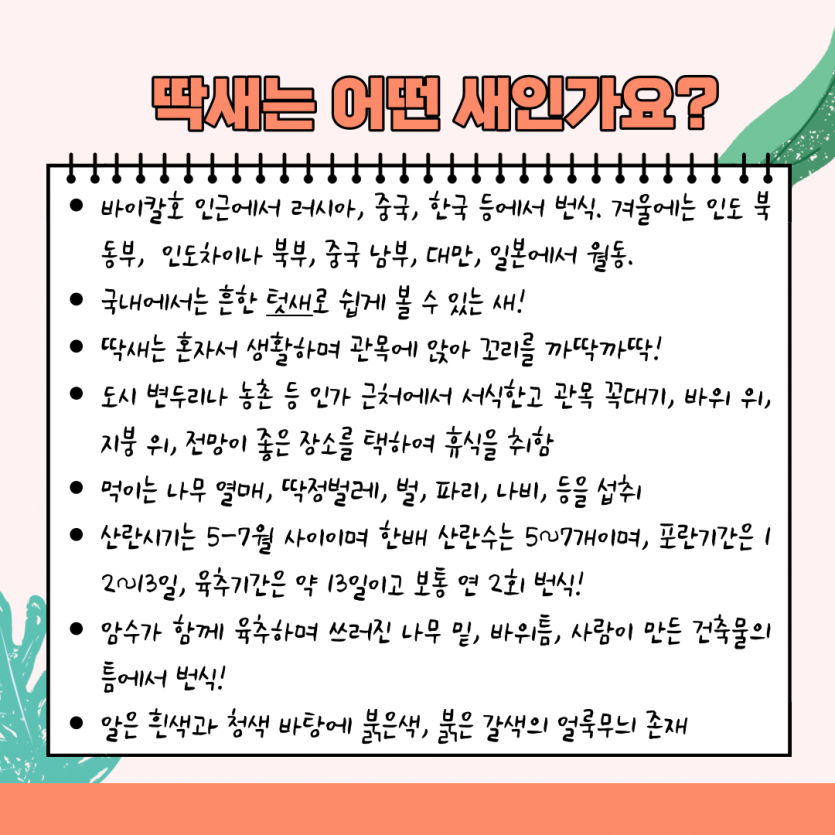 딱새는 어떤 새인가요?
● 바이칼호 인근에서 러시아, 중국, 한국 등에서 번식. 겨울에는 인도 북
동부, 인도차이나 북부, 중국 남부, 대만, 일본에서 월동.
● 국내에서는 흔한 텃새로 쉽게 볼 수 있는 새!
● 딱새는 혼자서 생활하며 관목에 앉아 꼬리를 까딱까딱!
● 도시 변두리나 농촌 등 인가 근처에서 서식한고 관목 꼭대기, 바위 위,
지붕 위, 전망이 좋은 장소를 택하여 휴식을 취함
● 먹이는 나무 열매, 딱정벌레, 벌, 파리, 나비, 등을 섭취
● 산란시기는 5-7월 사이이며 한배 산란수는 5~7개이며, 포란기간은 1
2~13일, 육추기간은 약 13일이고 보통 연 2회 번식!
● 암수가 함께 육추하며 쓰러진 나무 밑, 바위틈, 사람이 만든 건축물의
틈에서 번식!
● 알은 흰색과 청색 바탕에 붉은색, 붉은 갈색의 얼룩무늬 존재